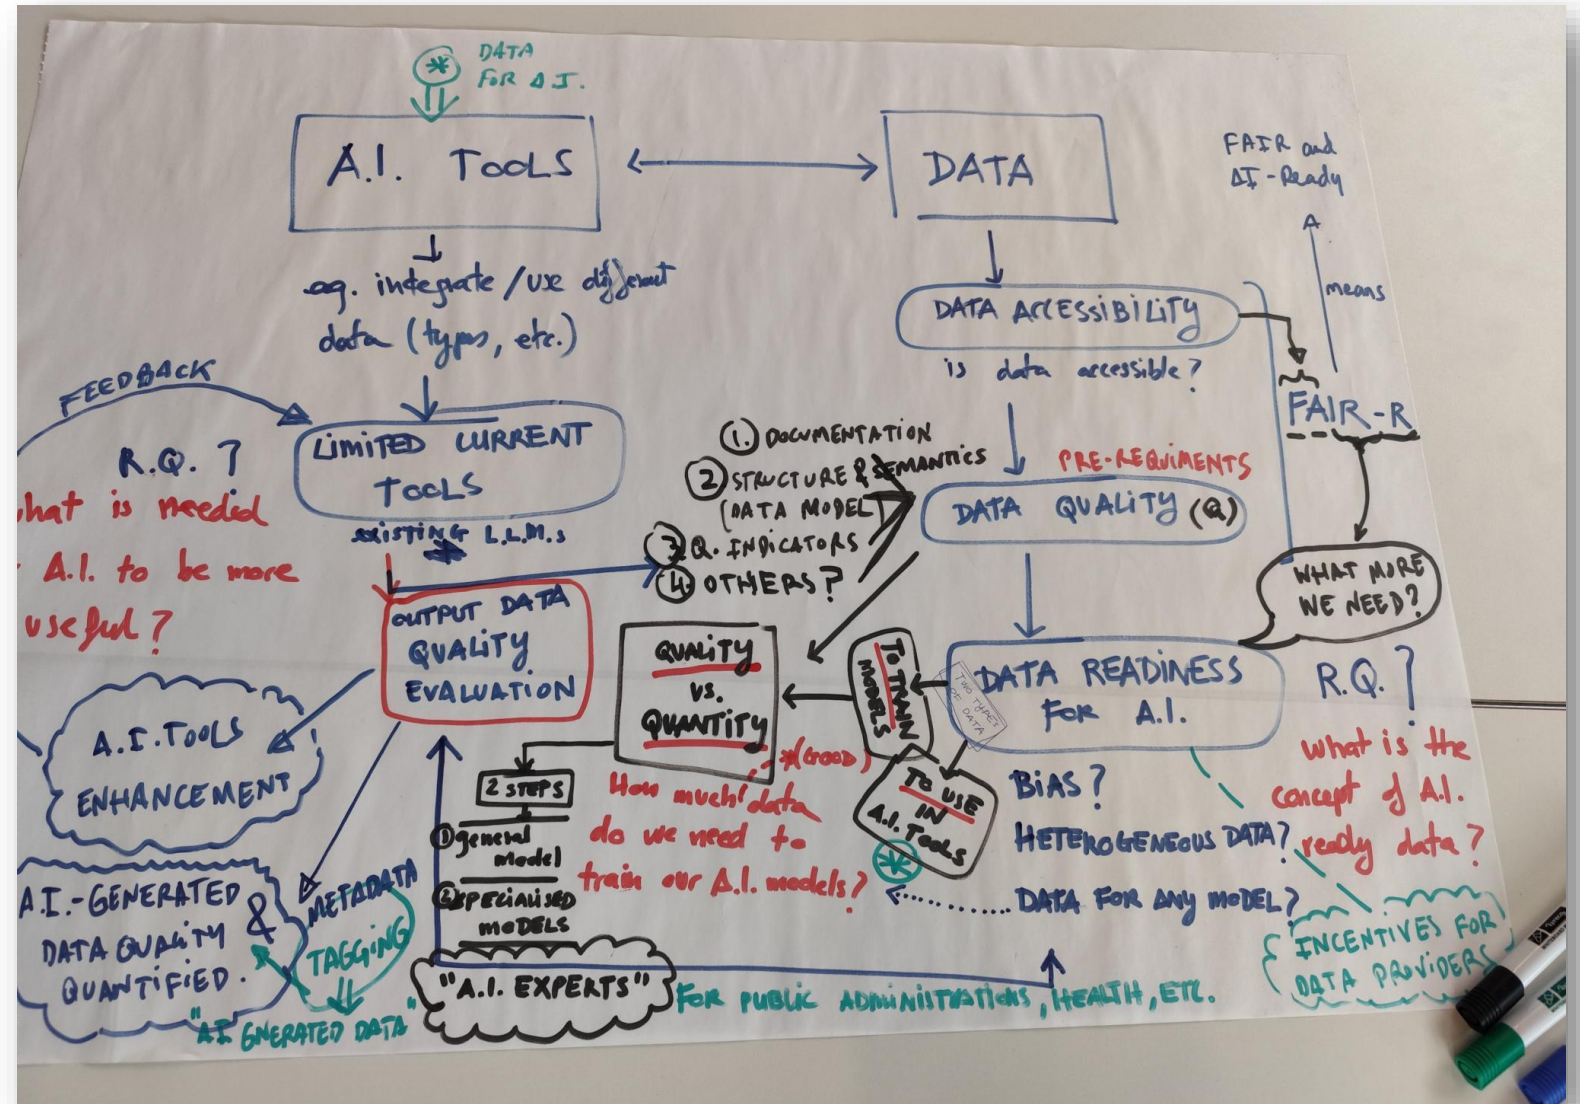 DATA
FOR A I.
A.I. TOOLS
DATA
FAIR and
AI-Ready
means
eg. integrate / use different
data (types, etc.)
DATA ACCESSIBILITY
is data accessible?
FAIR-R
FEEDBACK
LIMITED CURRENT
TOOLS
EXISTING L.L.M.s
R.Q. ?
what is needed
A.I. to be more
useful?
1. DOCUMENTATION
2 STRUCTURE & SEMANTICS
(DATA MODEL)
3 Q. INDICATORS
4. OTHERS?
PRE-REQUIMENTS
DATA QUALITY (Q)
WHAT MORE
WE NEED?
OUTPUT DATA
QUALITY
EVALUATION
QUALITY
VS.
QUANTITY
TO TRAIN
MODELS
TWO TYPES
OF DATA
DATA READINESS
FOR A.I.
R.Q. ?
What is the
concept of A.I.
ready data?
A.I. TOOLS
ENHANCEMENT
2 STEPS
1 general
model
2 SPECIALISED
MODELS
*(GOOD)
How much data
do we need to
train our A.I. models?
TO USE
IN
A.I. TOOLS
BIAS?
HETEROGENEOUS DATA?
DATA FOR ANY MODEL?
A.I.-GENERATED
DATA QUALITY &
QUANTIFIED.
METADATA
TAGGING
"AI GNERATED DATA"
"A.I. EXPERTS"
FOR PUBLIC ADMINISTRATIONS, HEALTH, ETC.
INCENTIVES FOR
DATA PROVIDERS